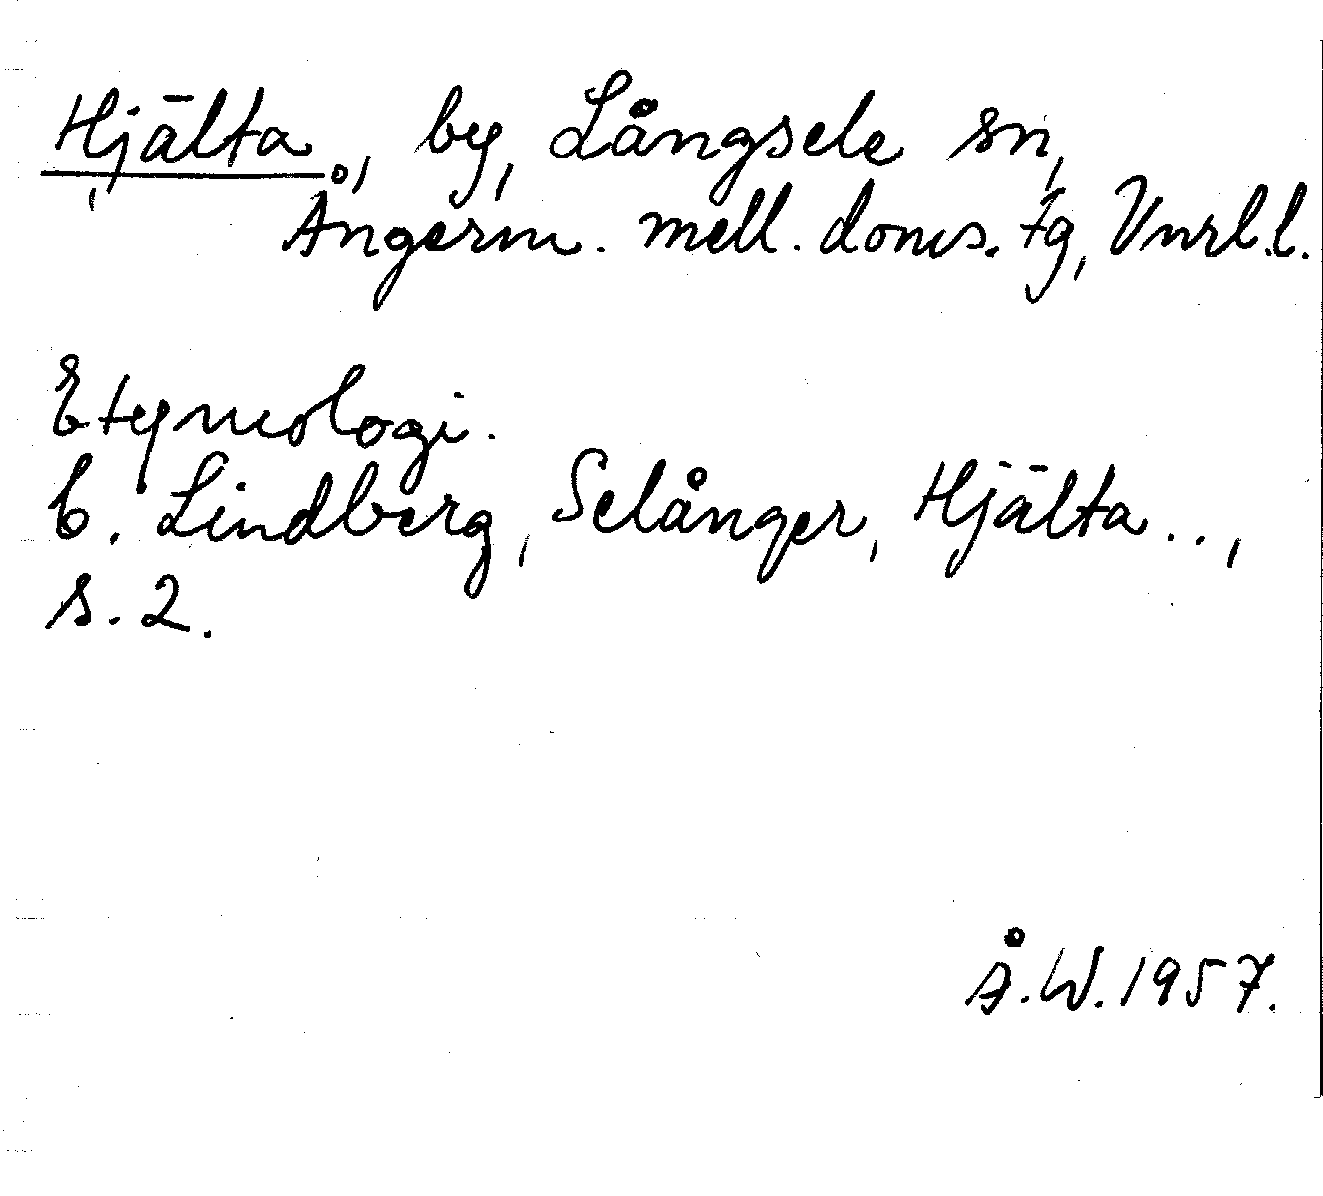 Hjälta, by, Långsele sn,
Ångerm. mell. doms. tg, Vnrl.l.
Etymologi.
C. Lindberg, Selånger, Hjälta..,
s. 2.
Å.W. 1957.